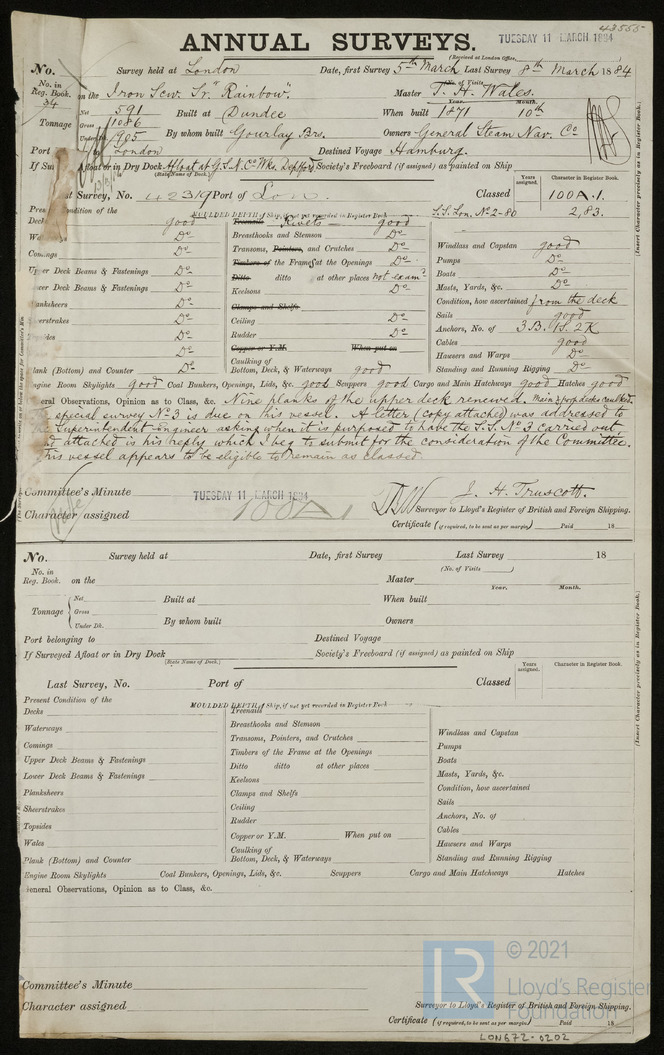 43555
TUESDAY 11 MARCH 1884
ANNUAL SURVEYS.
(Received at London Office,
No. Survey held at London Date, first Survey 5th March Last Survey 8th March 1884
(No. of Visits
No. in Reg. Book. 34 on the Iron Scw. Sr. "Rainbow". Master T. H. Wales.
Year. Month.
Tonnage Net 591 Built at Dundee When built 1871 10th
Gross 1086
Under 905 By whom built Gourlay Bro. Owners General Steam Nav. Co
Port London Destined Voyage Hamburg.
If Sur Afloat or in Dry Dock Afloat at G.S.N.Co Wks. Deptford Society's Freeboard (if assigned) as painted on Ship
(State Name of Dock.)
Years assigned. Character in Register Book.
st Survey, No. 42319 Port of Lon. Classed 100A.1.
S.S. Lon. No 2-80 2,83.
Pres Condition of the MOULDED DEPTH of Ship, if not yet recorded in Register Book
Decks good Treenails Rivets good
Wa Do Breasthooks and Stemson Do
Comings Do Transoms, Pointers, and Crutches Do
Upper Deck Beams & Fastenings Do Timbers of the Frames at the Openings Do
ower Deck Beams & Fastenings Do Ditto ditto at other places not exam?
lanksheers Do Keelsons Do
eerstrakes Do Clamps and Shelfs
sides Do Ceiling Do
Do Rudder Do
Copper or Y.M. When put on
lank (Bottom) and Counter Do Caulking of Bottom, Deck, & Waterways good
Windlass and Capstan good
Pumps Do
Boats Do
Masts, Yards, &c. Do
Condition, how ascertained from the deck
Sails good
Anchors, No. of 3B. 1S. 2K
Cables good
Hawsers and Warps Do
Standing and Running Rigging Do
ngine Room Skylights good Coal Bunkers, Openings, Lids, &c. good Scuppers good Cargo and Main Hatchways good Hatches good
eral Observations, Opinion as to Class, &c. Nine planks of the upper deck renewed. Main & poop decks caulked.
special survey No 3 is due on this vessel. A letter (copy attached) was addressed to
Superintendent Engineer asking when it is purposed to have the S.S. No 3 carried out
attached is his reply which I beg to submit for the consideration of the Committee.
This vessel appears to be eligible to remain as classed.
Committee's Minute TUESDAY 11 MARCH 1884 J. H. Truscott.
Character assigned 100A1 Surveyor to Lloyd's Register of British and Foreign Shipping.
Certificate (if required, to be sent as per margin) Paid 18
(Insert Character precisely as in Register Book.)
No. Survey held at Date, first Survey Last Survey 18
(No. of Visits )
No. in Reg. Book. on the Master
Year. Month.
Tonnage Net Built at When built
Gross
Under Dk. By whom built Owners
Port belonging to Destined Voyage
If Surveyed Afloat or in Dry Dock Society's Freeboard (if assigned) as painted on Ship
(State Name of Dock.)
Years assigned. Character in Register Book.
Last Survey, No. Port of Classed
Present Condition of the MOULDED DEPTH of Ship, if not yet recorded in Register Book
Decks Treenails
Waterways Breasthooks and Stemson
Comings Transoms, Pointers, and Crutches
Upper Deck Beams & Fastenings Timbers of the Frame at the Openings
Lower Deck Beams & Fastenings Ditto ditto at other places
Planksheers Keelsons
Sheerstrakes Clamps and Shelfs
Topsides Ceiling
Wales Rudder
Copper or Y.M. When put on
Plank (Bottom) and Counter Caulking of Bottom, Deck, & Waterways
Windlass and Capstan
Pumps
Boats
Masts, Yards, &c.
Condition, how ascertained
Sails
Anchors, No. of
Cables
Hawsers and Warps
Standing and Running Rigging
Engine Room Skylights Coal Bunkers, Openings, Lids, &c. Scuppers Cargo and Main Hatchways Hatches
eneral Observations, Opinion as to Class, &c.
(Insert Character precisely as in Register Book.)
Committee's Minute
Character assigned Surveyor to Lloyd's Register of British and Foreign Shipping.
Certificate (if required, to be sent as per margin) Paid 18
LR © 2021
Lloyd's Register
Foundation
LON672-0202